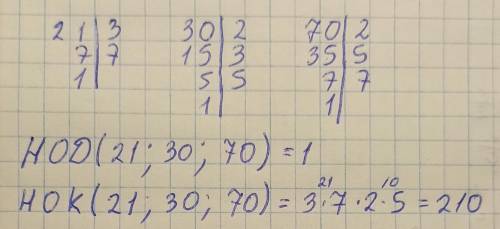 21|3 30|2 70|2
7|7 15|3 35|5
1| 5|5 7|7
1| 1|
НОД(21; 30; 70) = 1
НОК(21; 30; 70) = 3·7·2·5 = 210
21 10